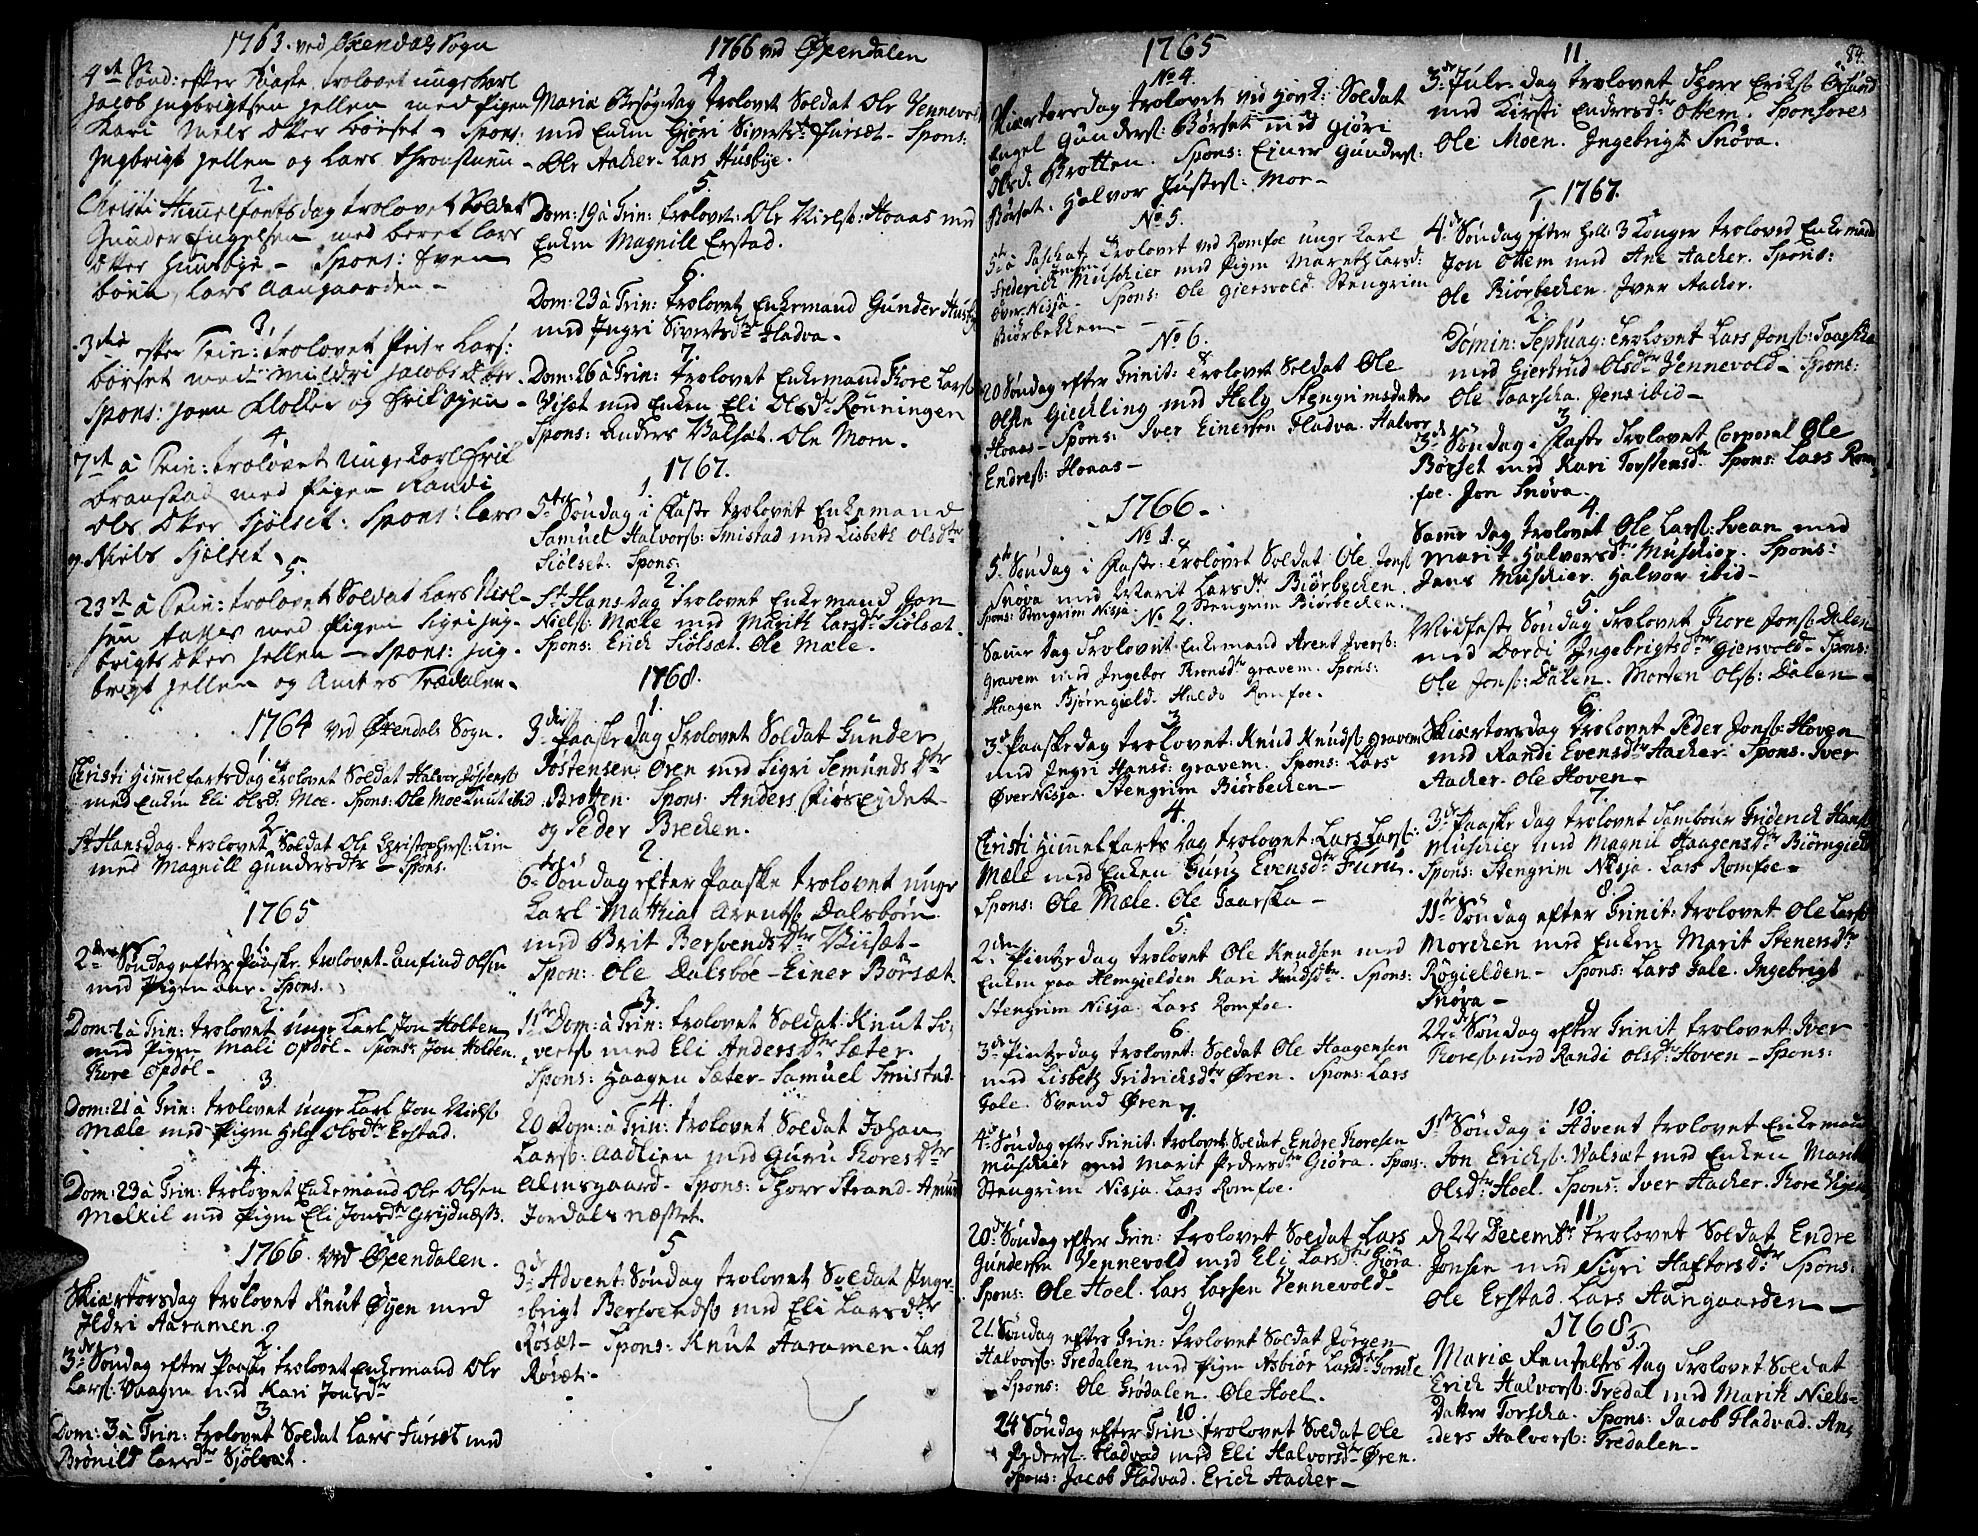 1763. ved Øxendals Sogn
4de Sønd: efter Paaske trolovet unge Karl
Jacob Jngbrigtsen Jellen med Pigen
Kari Niels Dter Børset - Spons:
Jngbrigt Jellen og Lars
2.
Christi Himelfartsdag trolovet Soldat
Gunder Engelsen med Beret Lars
Dter Huusbye - Spons: Sven
Lars Aangaarden -
3.
3die efter Trin: trolovet Peter Lars:
børset med Mildri Jacobs Dter
Spons: Joen Klokker og Erik Øyen -
4.
7de à Trin: trolovet Unge Karl Erik
branstad med Pigen Randi
Ols Dter Sjölset: Spons: Lars
og Niels Sjölset -
5.
23de à Trin: trolovet Soldat Lars Niel-
sen med Pigen Sigri Jng-
brigts Dter Jellen - Spons: Jng-
brigt Jellen og Anders Trædalen.
1764 ved Øxendals Sogn.
1.
Christi Himmelfartsdag trolovet Soldat Halvor
med Enken Eli Olsd: Moe. Spons: Ole Moe Knut ibid
2.
St Hansdag trolovet Soldat Ole Christophers: Lim
med Magnill Gundersdtr - Spons.
1765
1.
2den Søndag efter Paaske trolovet Anfind Olsen
med Pigen Ane. Spons.
2.
Dom: 1 à Trin: trolovet Unge Karl Jon Holten
med Pigen Mali Opdøl - Spons: Jon Holten.
Thore Opdøl -
3.
Dom: 21 à Trin: trolovet Unge Karl Jon Niels:
Mæle med Pigen Helge Olsdtr Erstad.
4.
Dom: 23 à Trin: trolovet Enkemand Ole Olsen
Melkil med Pigen Eli Jonsdtr Grydnæss.
1766. ved Øxendalen.
1.
Skiærtorsdag trolovet Knut Øyen med
Jldri Aaramen.
2.
3de Søndag efter Paaske trolovet Enkemand Ole
Lars: Vaagen med Kari Jonsdr
3
Dom: 3 à Trin: trolovet Soldat Lars Fursæt med
Brønild Larsdtr Sjölsæt.
1766 ved Øxendalen
4
Mariæ Besøg: dag trolovet Soldat Ole Vennevold
med Enken Gjöri Sivertsdr Fursæt - Spons:
Ole Aacker. Lars Husbye.
5.
Dom: 19 à Trin: trolovet: Ole Niels: Hoaas med
Enken Magnill Erstad.
6.
Dom: 23 à Trin: trolovet Enkemand Gunder Husby
med Jngri Sivertsdtr Fladva.
7
Dom: 26 à Trin: trolovet Enkemand Thore Lars:
Viisæt med Enken Eli Olsdr Rønningen
Spons: Anders Valsæt. Ole Moen.
1767.
1.
5te Søndag i Faste trolovet Enkemand
Samuel Halvors: Smistad med Lisbeth Olsdtr
Siölset. Spons:
2
St Hans-dag trolovet Enkemand Jon
Niels: Mæle med Marith Larsdr Siölsæt.
Spons: Erich Siölsæt. Ole Mæle.
1768.
1.
3die Paaske dag trolovet Soldat Gunder
Jostensen Øren med Sigri Semunds Dtr
Brotten. Spons. Anders
og Peder Brecken.
2
6te Søndag efter Paaske trolovet unge
Karl Mathias Arents: Dalsbøen
med Brit Bersvends Dtr Viisæt -
Spon: Ole Dalsböe - Einer Börsæt.
3.
11te Dom: à Trin: trolovet Soldat Knut Si-
verts: med Eli Anders Dtr Sæter.
Spons: Haagen Sæter - Samuel Smistad.
4.
20 Dom: à Trin: trolovet Soldat Johan
Lars: Aadlien med Guru Thores Dtr
Almsgaard - Spons: Thore Strand - Amun
Jordalsnæsset.
5
3de Advent Søndag trolovet Soldat Jnge-
brigt Bersvends: med Eli Larsdtr
Røsæt - Spons: Knut Aaramen. Lars
Røsæt -
1765
No 4.
Skiærtorsdag trolovet ved Hovk: Soldat
Engel Gunders: Børset med Gjöri
Olsd. Brotten. Spons: Einer Gunders:
Børset. Halvor Justes: Moe -
No 5.
5te à Paschat. trolovet ved Romfoe unge Karl
Frederich Muschier med Pigen Mareth Larsd:
Over Nisja - Spons: Ole Giersvold Stengrim
Biörbekken -
No 6.
20 Søndag efter Trinit: trolovet Soldat Ole
Olsen Giechling med Helg Stengrimsdatter
Hoaas - Spons: Iver Einersen Fladva. Halvor
Endres: Hoaas -
1766 -
No 1.
5te Søndag i Faste trolovet Soldat Ole Jons:
Snøva med Marit Larsdtr Biörbecken.
Spons: Stengrim Nisja. Stengrim Biörbecken.
No 2.
Same Dag trolovet Enkemand Arent Ivers:
Gravem med Jngebor Tronsdtr Gravem. Spons:
Haagen Björngield. Haldo Romfoe.
3
3de Paaskedag trolovet Knud Knuds: Gravem
med Jngri Hansd: Gravem. Spons: Lars
Øver Nisja. Stengrim Biörbecken -
4.
Christi Himmelfarts Dag trolovet Lars Lars:
Mæle med Enken Guru Evensdtr Furu.
Spons: Ole Mæle. Ole Gaarska -
5.
2den Pintzedag trolovet Ole Knudsen med
Enken paa Hemgielden Kari Knudsdtr. Spons:
Stengrim Nisja. Lars Romfoe.
6
3de Pintzedag trolovet Soldat Ole Haagensen
med Lisbeth Fridrichsdtr Øren. Spons: Lars
Fale. Svend Øren.
7.
4de Søndag efter Trinit: trolovet Soldat Endre Thoresen
Muschier med Marit Pedersdtr Giöra. Spons:
Stengrim Nisja. Lars Romfoe.
8
20de Søndag efter Trin: trolovet Soldat Lars
Gundersen Vennevold med Eli Larsdtr Giöra.
Spons: Ole Hoel. Lars Larsen Vennevold -
9
21. Søndag efter Trin: trolovet Soldat Jörgen
Halvors: Tredalen med Pigen Asbiör Larsdtr
Spons: Ole Grødalen. Ole Hoel.
10
24 Søndag efter Trin: trolovet Soldat Ole
Peders: Fladvad med Eli Halvorsdtr Øren.
Spons: Jacob Fladvad. Erich Aacker -
84.
11
3de Jule-dag trolovet Thore Eriks:
med Kirsti Endersdtr Ottem. Sponsores
Ole Moen. Ingebrigt Snøva.
1767.
1
4de Søndag efter Hell: 3 Konger troloved Enkemand
Jon Ottem med Ane Aacker. Spons:
Ole Biörbecken. Iver Aacker.
2.
Domin: Septuag: trolovet Lars Jons: Taarscha
med Giertrud Olsdtr Vennevold - Spons:
Ole Taarscha. Jens ibid -
3
3de Søndag i Faste trolovet Corporal Ole
Børset med Kari Torstensdtr. Spons: Lars Rom
foe. Jon Snøva -
4.
Same dag trolovet Ole Lars: Svean med
Marit Halvorsdtr Muschier. Spons:
Jens Muschier. Halvor ibid -
5.
Midfaste Søndag trolovet Thore Jons: Dalen
med Dordi Ingebrigtsdtr Giersvold - Spons:
Ole Jons: Dalen. Morten Ols: Dalen -
6.
Skiærtorsdag trolovet Peder Jons: Hoven
med Randi Evensdtr Aacker. Spons. Iver
Aacker. Ole Hoven -
7.
3de Paaske dag trolovet Tambour Friderich Hans
Muschier med Magnil Haagensdtr Biörngield
Spons: Stengrim Nisja. Lars Romfoe -
8
11te Søndag efter Trinit: trolovet Ole Lars:
Morchen med Enken Marit Stenersdtr
Røgielden - Spons: Lars Fale. Ingebrigt
Snøva -
9
22de Søndag efter Trinit trolovet Iver
Thores: med Randi Olsdtr Hoven - Spons:
10.
1ste Søndag i Advent trolovet Enkemand
Jon Ericks: Walsæt med Enken
Olsdtr Hoel. Spons: Iver Aacker. Thore
11.
d 22 Decembr trolovet Soldat Endre
Jonsen med Sigri Haftorsdtr Spons:
Ole Erstad. Lars Aangaarden -
1768
Mariæ Renselses Dag trolovet Soldat
Erich Halvors: Tredal med Marith Niels-
Datter Torscha. Spons: Jacob Fladvad. An-
ders Halvors: Tredalen -